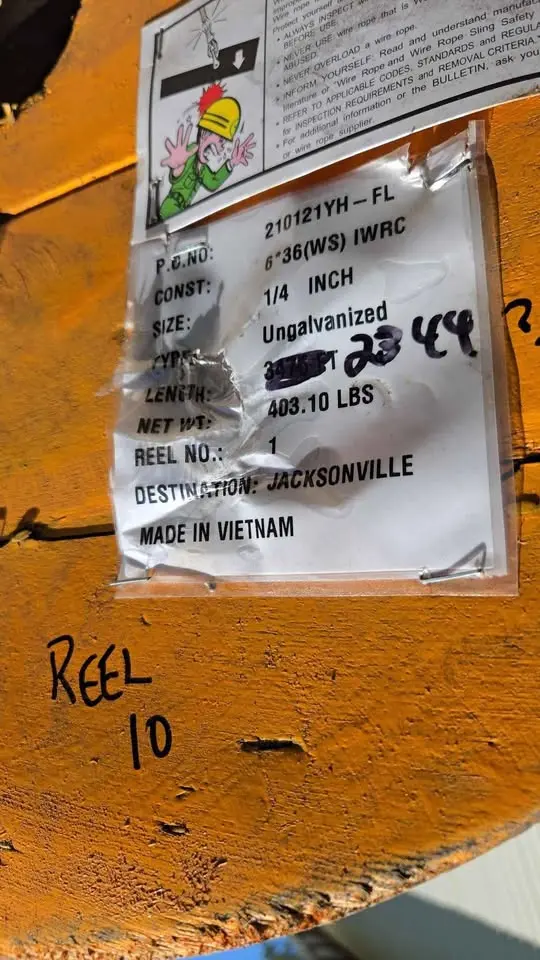 Protect yourself
• ALWAYS INSPECT
BEFORE USE
• NEVER USE wire rope that is
ABUSED.
• NEVER OVERLOAD a wire rope.
• INFORM YOURSELF: Read and understand
literature or "Wire Rope and Wire Rope Sling Safety
REFER TO APPLICABLE CODES, STANDARDS and
for INSPECTION REQUIREMENTS and REMOVAL CRITERIA.
• For additional information or the BULLETIN, ask
or wire rope supplier.
P.O.NO: 210121YH-FL
CONST: 6*36(WS) IWRC
SIZE: 1/4 INCH
TYPE: Ungalvanized
LENGTH: 2344
NET WT: 403.10 LBS
REEL NO.: 1
DESTINATION: JACKSONVILLE
MADE IN VIETNAM
REEL
10